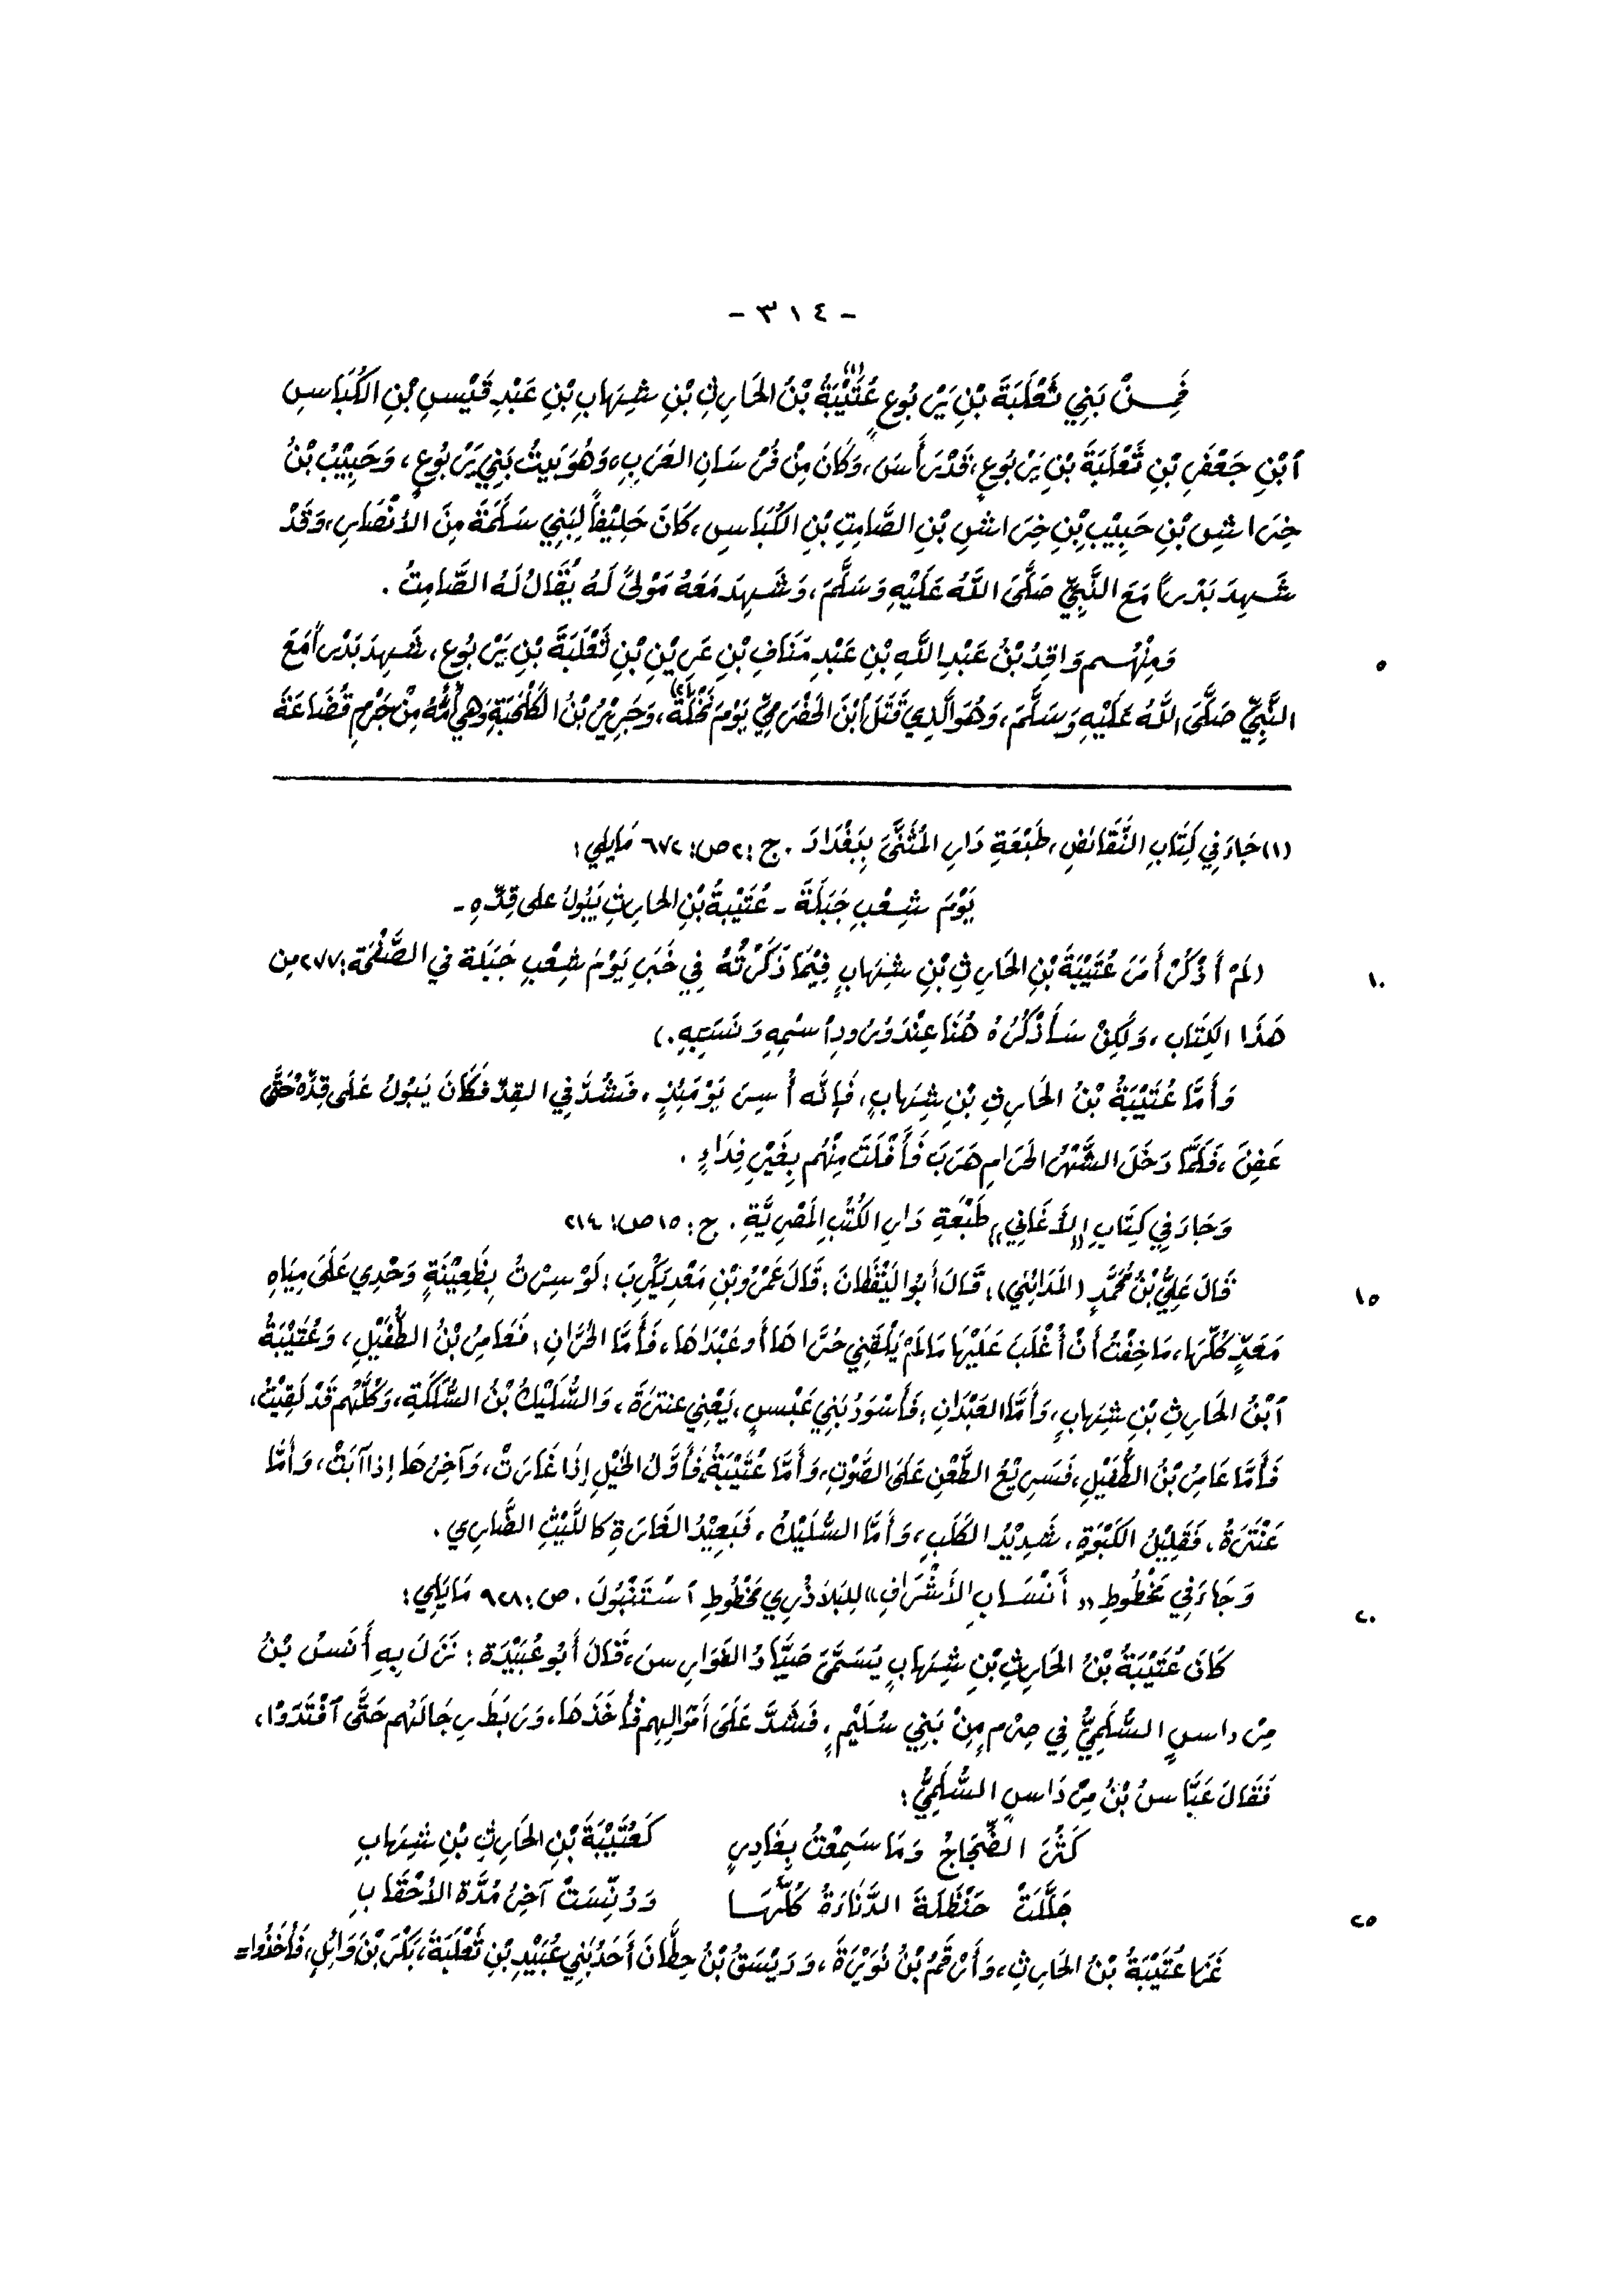 - ٣١٤ -
فَمِنْ بَنِي ثَعْلَبَةَ بْنِ يَرْبُوعٍ عُتَيْبَةُ(١) بْنُ الحَارِثِ بْنِ شِهَابِ بْنِ عَبْدِ قَيْسِ بْنِ الكُبَاسِ
ٱبْنِ جَعْفَرِ بْنِ ثَعْلَبَةَ بْنِ يَرْبُوعٍ، قَدْ رَأَسَ، وَكَانَ مِنْ فُرْسَانِ العَرَبِ، وَهُوَ بَيْتُ بَنِي يَرْبُوعٍ، وَحَبِيْبُ بْنُ
خِرَاشِ بْنِ حَبِيْبِ بْنِ خِرَاشِ بْنِ الصَّامِتِ بْنِ الكُبَاسِ، كَانَ حَلِيْفاً لِبَنِي سَلَمَةَ مِنَ الأَنْصَارِ، وَقَدْ
شَهِدَ بَدْراً مَعَ النَّبِيِّ صَلَّى اللَّهُ عَلَيْهِ وَسَلَّمَ، وَشَهِدَ مَعَهُ مَوْلىً لَهُ يُقَالُ لَهُ الصَّامِتُ.
٥ وَمِنْهُم وَاقِدُ بْنُ عَبْدِ اللَّهِ بْنِ عَبْدِ مَنَافِ بْنِ عَرِيْنِ بْنِ ثَعْلَبَةَ بْنِ يَرْبُوعٍ، شَهِدَ بَدْراً مَعَ
النَّبِيِّ صَلَّى اللَّهُ عَلَيْهِ وَسَلَّمَ، وَهُوَ الَّذِي قَتَلَ ٱبْنَ الحَضْرَمِيِّ يَوْمَ نَخْلَةَ(٢)، وَجَرِيْرُ بْنُ الكَلْحَبَةِ وَهِيَ أُمُّهُ مِنْ جَرْمِ قُضَاعَةَ
(١) جَاءَ فِي كِتَابِ النَّقَائِضِ، طَبْعَةِ دَارِ المُثَنَّى بِبَغْدَادَ. ج: ٢ ص: ٦٧٢ مَايلي:
يَوْمَ شِعْبِ جَبَلَةَ - عُتَيْبَةُ بْنِ الحارِثِ يَبُولُ على قِدِّهِ -
١٠ (لَمْ أَذْكُرْ أَمْرَ عُتَيْبَةَ بْنِ الحَارِثِ بْنِ شِهَابٍ فِيْمَا ذَكَرْتُهُ فِي خَبَرِ يَوْمَ شِعْبِ جَبَلَة في الصَّفْحَة: ٢٧٧ مِن
هَذَا الكِتَاب، وَلَكِنْ سَأَذْكُرُهُ هُنَا عِنْدَ وُرُودِ ٱسْمِهِ وَنَسَبِهِ.)
وَأَمَّا عُتَيْبَةُ بْنُ الحَارِثِ بْنِ شِهَابٍ، فَإِنَّه أُسِرَ يَوْمَئِذٍ، فَشُدَّ فِي القِدِّ فَكَانَ يَبُولُ عَلَى قِدِّهِ حَتَّى
عَفِنَ، فَلَمَّا دَخَلَ الشَّهْرُ الحَرَام هَرَبَ فَأَفْلَتَ مِنْهُم بِغَيْرِ فِدَاءٍ.
وَجَاءَ فِي كِتَابِ «الأَغَانِي» طَبْعَةِ دَارِ الكُتُبِ المَصْرِيَّةِ. ج: ١٥ ص: ٢١٤
١٥ قَالَ عَلِيُّ بْنُ مُحَمَّدٍ (المَدَائِنِي): قَالَ أَبُو اليَقْظَانِ: قَالَ عَمْرُو بْنِ مَعْدِيكَرِبَ: لَوْ سِرْتُ بِظَعِيْنَةٍ وَحْدِي عَلَى مِيَاهِ
مَعَدٍّ كُلِّهَا، مَا خِفْتُ أَنْ أُغْلَبَ عَلَيْهَا مَا لَمْ يَلْقَنِي حُرَّاهَا أَو عَبْدَاهَا، فَأَمَّا الحُرَّانِ: فَعَامِرُ بْنُ الطُّفَيْلِ، وَعُتَيْبَةُ
ٱبْنُ الحَارِثِ بْنِ شِهَابٍ، وَأَمَّا العَبْدَانِ: فَأَسْوَدُ بَنِي عَبْسٍ، يَعْنِي عنترَةَ، وَالسُّلَيْكُ بْنُ السُّلَكَةِ، وَكُلُّهُم قَدْ لَقِيْتُ،
فَأَمَّا عَامِرُ بْنُ الطُّفَيْلِ، فَسَرِيْعُ الطَّعْنِ عَلَى الصَّوْتِ، وَأَمَّا عُتَيْبَةُ فَأَوَّلُ الخَيْلِ إِذَا غَارَتْ، وَآخِرُهَا إِذا آبَتْ، وَأَمَّا
عَنْتَرَةُ، فَقَلِيْلُ الكَبْوَةِ، شَدِيْدُ الكَلَبِ، وَأَمَّا السُّلَيْكُ، فَبَعِيْدُ الغَارَةِ كَاللَّيْثِ الضَّارِي.
٢٠ وَجَاءَ فِي مَخْطُوطِ «أَنْسَابِ الأَشْرَافِ» لِلبَلاذُرِي مَخْطُوطِ ٱسْتَنْبُولَ. ص: ٩٢٨ مَا يَلِي:
كَانَ عُتَيْبَةُ بْنُ الحَارِثِ بْنِ شِهَابٍ يُسَمَّى صَيَّادُ الفَوَارِسِ، قَالَ أَبُو عُبَيْدَة: نَزَلَ بِهِ أَنَسُ بْنُ
مِرْداسٍ السُّلَمِيُّ فِي صِرْمٍ مِنْ بَنِي سُلَيْمٍ، فَشَدَّ عَلَى أَمْوَالِهِم فَأَخَذَهَا، وَرَبَطَ رِجَالَهُم حَتَّى ٱفْتَدَوْا،
فَقَالَ عَبَّاسُ بْنُ مِرْدَاسٍ السُّلَمِيُّ:
كَثُرَ الضِّجَاجُ وَمَا سَمِعْتُ بِغَادِرٍ كَعُتَيْبَةَ بْنِ الحَارِثِ بْنِ شِهَابِ
جَلَّلَتْ حَنْظَلَةَ الدَّنَاءَةُ كُلَّهَا وَدُنِّسَتْ آخِرُ مُدَّة الأَحْقَابِ
٢٥ غَزَا عُتَيْبَةُ بْنُ الحَارِثِ، وَأَرْقَمُ بْنُ نُوَيْرَةَ، وَدَيْسَقُ بْنُ حِطَّانَ أَحَدُ بَنِي عُبَيْدِ بْنِ ثَعْلَبَةَ، بَكْرَ بْنَ وَائِلٍ، فَأَخَذُوا=